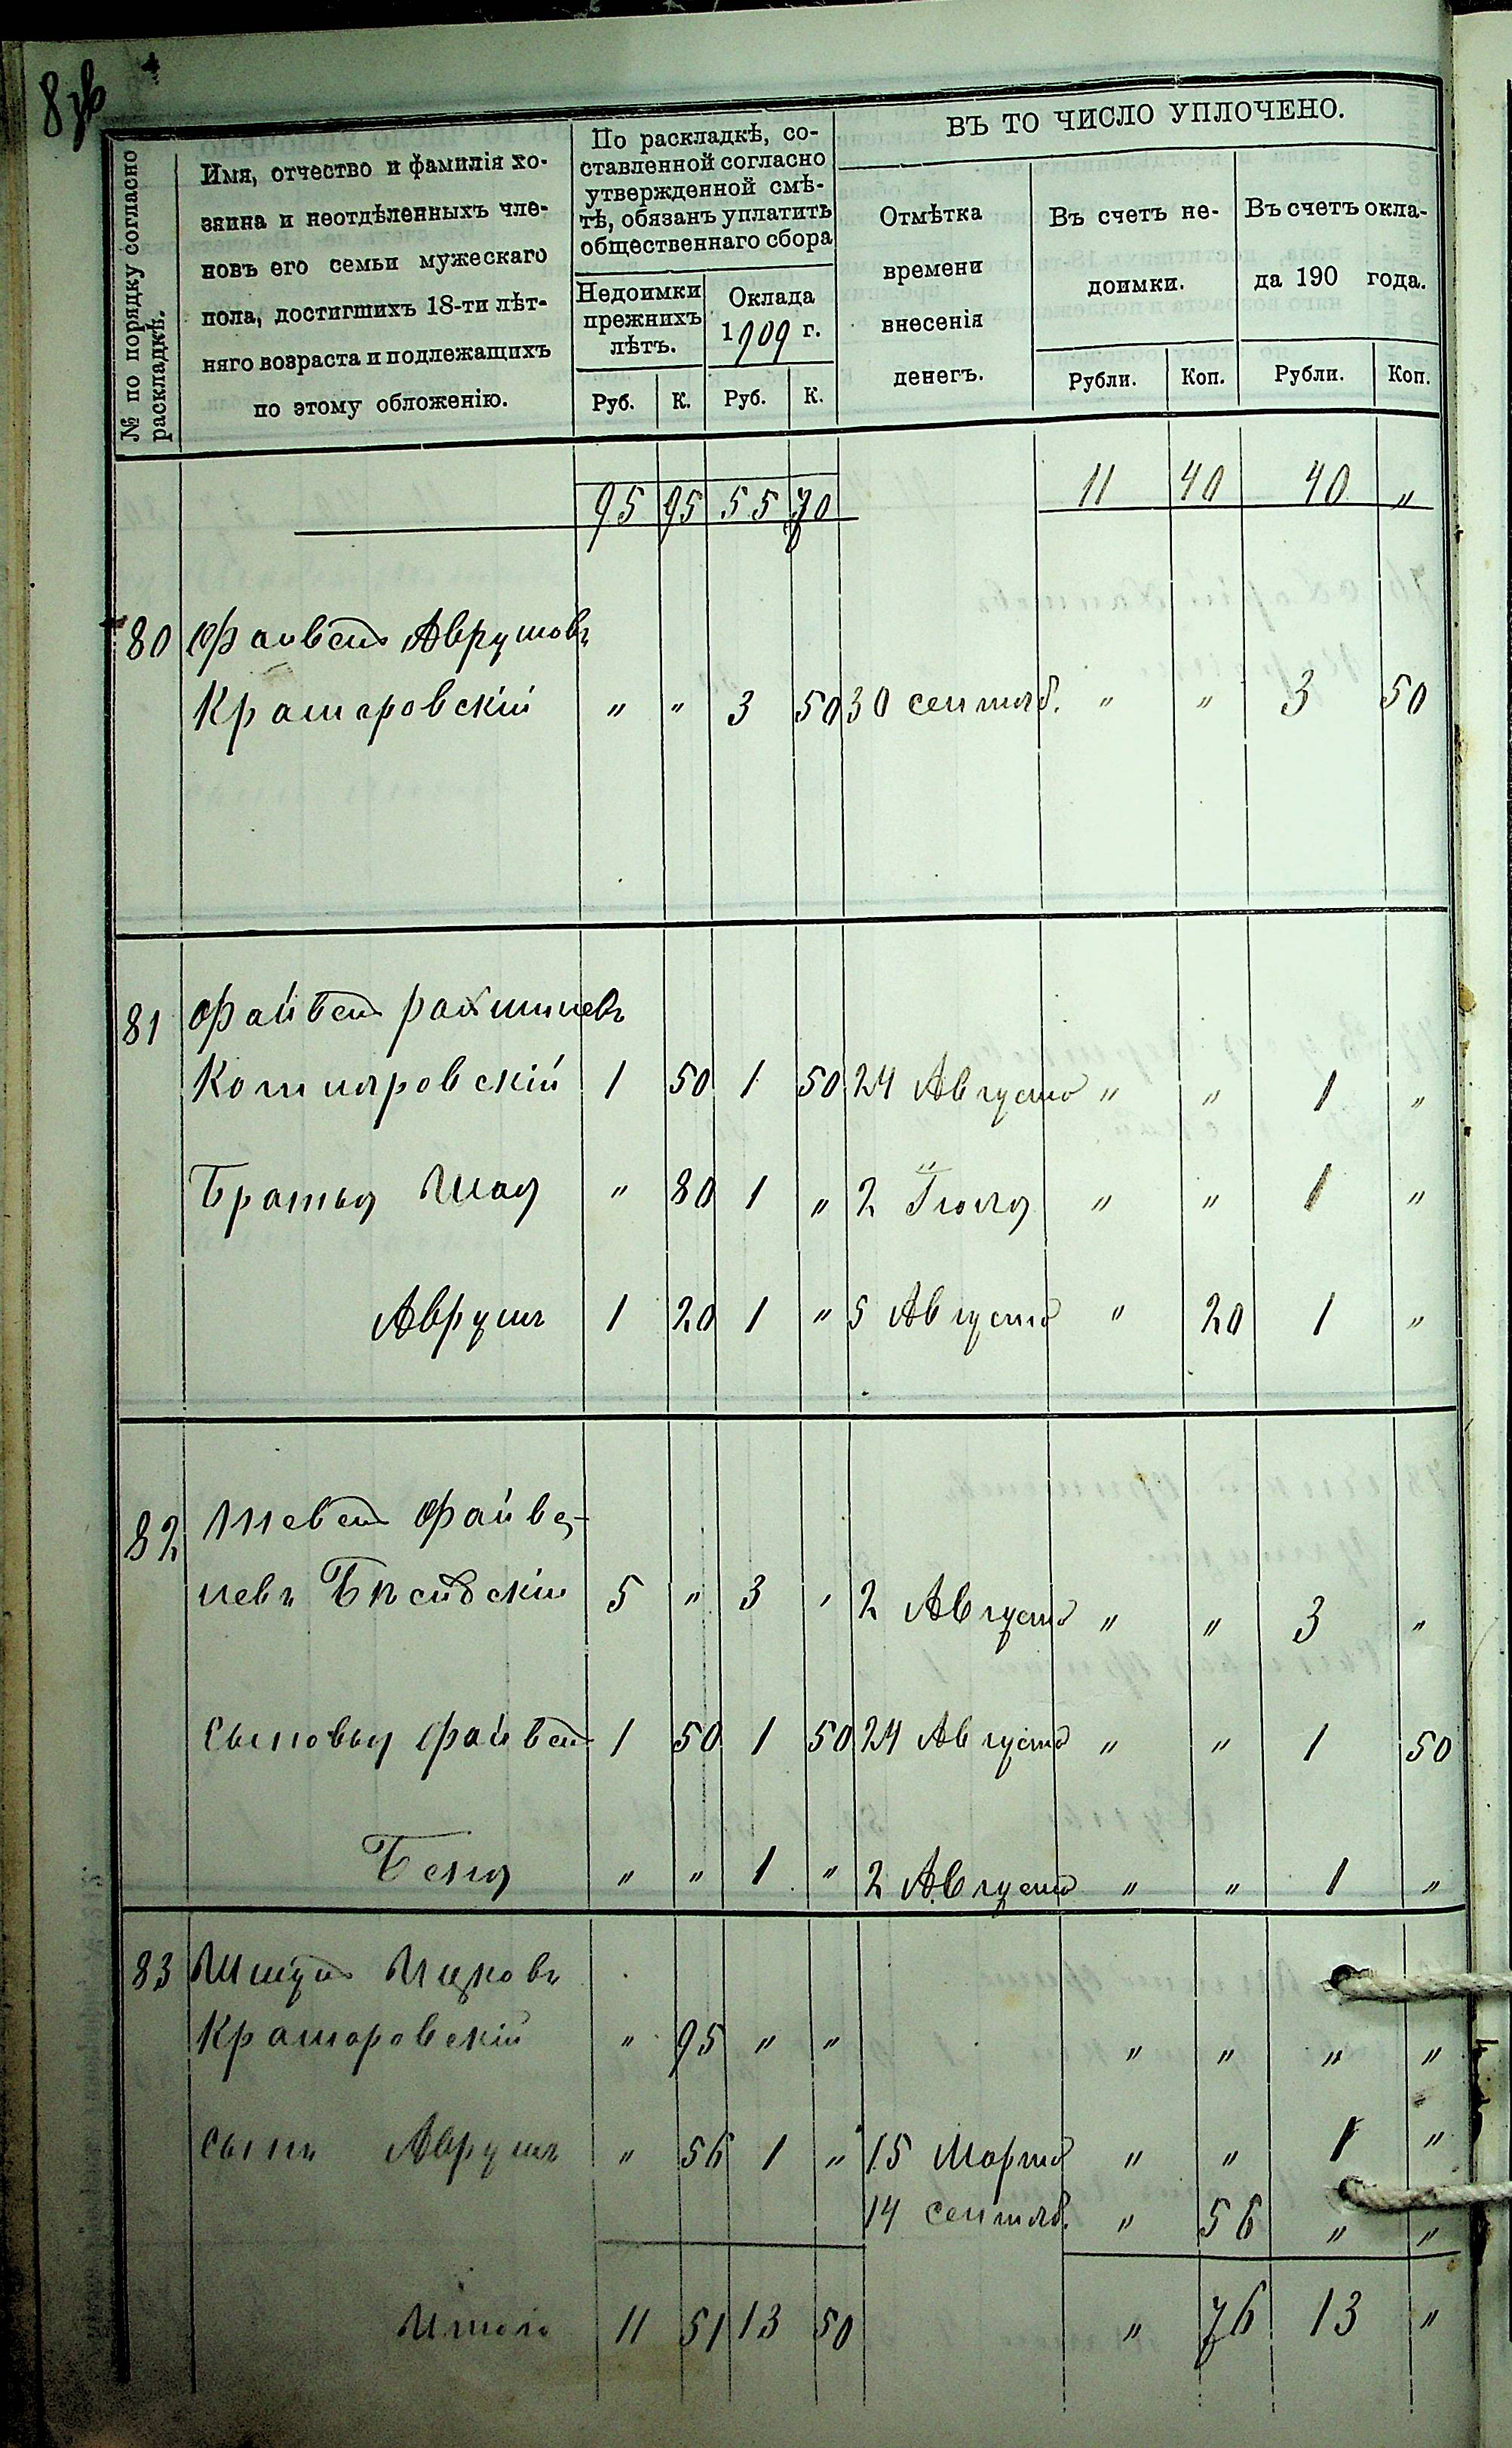 № по порядку согласно
раскладкѣ.
Имя, отчество и фамилія хо-
зяина и неотдѣленныхъ чле-
новъ его семьи мужескаго
пола, достигшихъ 18-ти лѣт-
няго возраста и подлежащихъ
по этому обложенію.
По раскладкѣ, со-
ставленной согласно
утвержденной смѣ-
тѣ, обязанъ уплатить
общественнаго сбора
Недоимки
прежнихъ
лѣтъ.
Оклада
1909 г.
Руб. К. Руб. К.
ВЪ ТО ЧИСЛО УПЛОЧЕНО.
Отмѣтка
времени
внесенія
денегъ.
Въ счетъ не-
доимки.
Рубли. Коп.
Въ счетъ окла-
да 190 года.
Рубли. Коп.
95 95 55 70 11 40 40 "
80 Файвель Аврумовъ
Крамаровскій " " 3 50 30 сентяб. " " 3 50
81 Файвель
Котляровскій 1 50 1 50 24 Августа " " 1 "
Братья " 80 1 " 2 Іюля " " 1 "
Аврумъ 1 20 1 " 5 Августа " 20 1 "
82 Файве-
левъ 5 " 3 " 2 Августа " " 3 "
Сыновья Файвель 1 50 1 50 24 Августа " " 1 50
" " 1 " 2 Августа " " 1 "
83 Ицковъ
Крамаровскій " 95 " " " " " "
Сынъ Аврумъ " 56 1 " 15 Марта " " 1 "
14 сентяб. " 56 " "
Итого 11 51 13 50 " 76 13 "